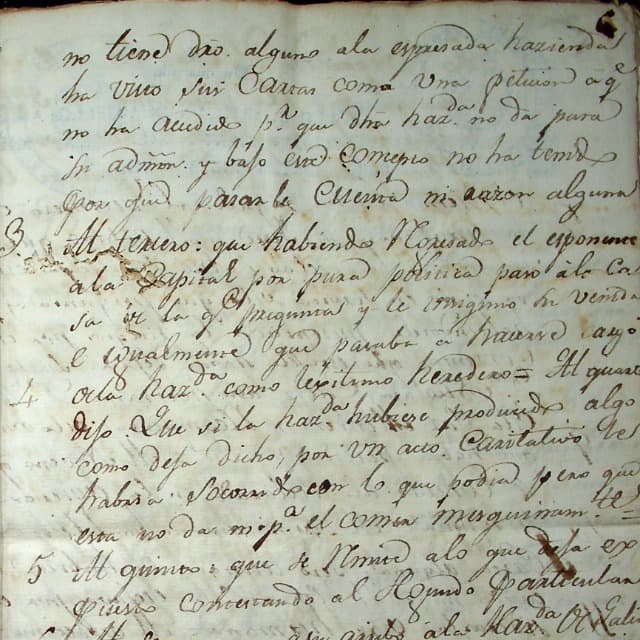 6
no tiene dro. alguno ala espresada hazienda
ha visto sus Cartas como una peticion a q.e
no ha acudido p.r que dha haz.da no da para
su admon. y bajo este concepto no ha tenido
por que pasarle Cuenta ni razon alguna
3. Al tercero: que habiendo Regresado el esponente
a la Capital por pura politica pasó á la Ca
sa de la q.e pregunta y le insinuo su venida
e igualmente que pasaba á hacerse cargo
dela haz.da como lexitimo heredero = Al quarto
4 dijo. Que si la haz.da hubiese producido algo
como deja dicho, por un acto Caritativo les
habria Socorrido con lo que podia pero que
esta no da ni p.a el comer mesquinam.te =
5 Al quinto: que se Remite alo que deja ex
puesto contestando al Segundo particular
ala Haz.da de